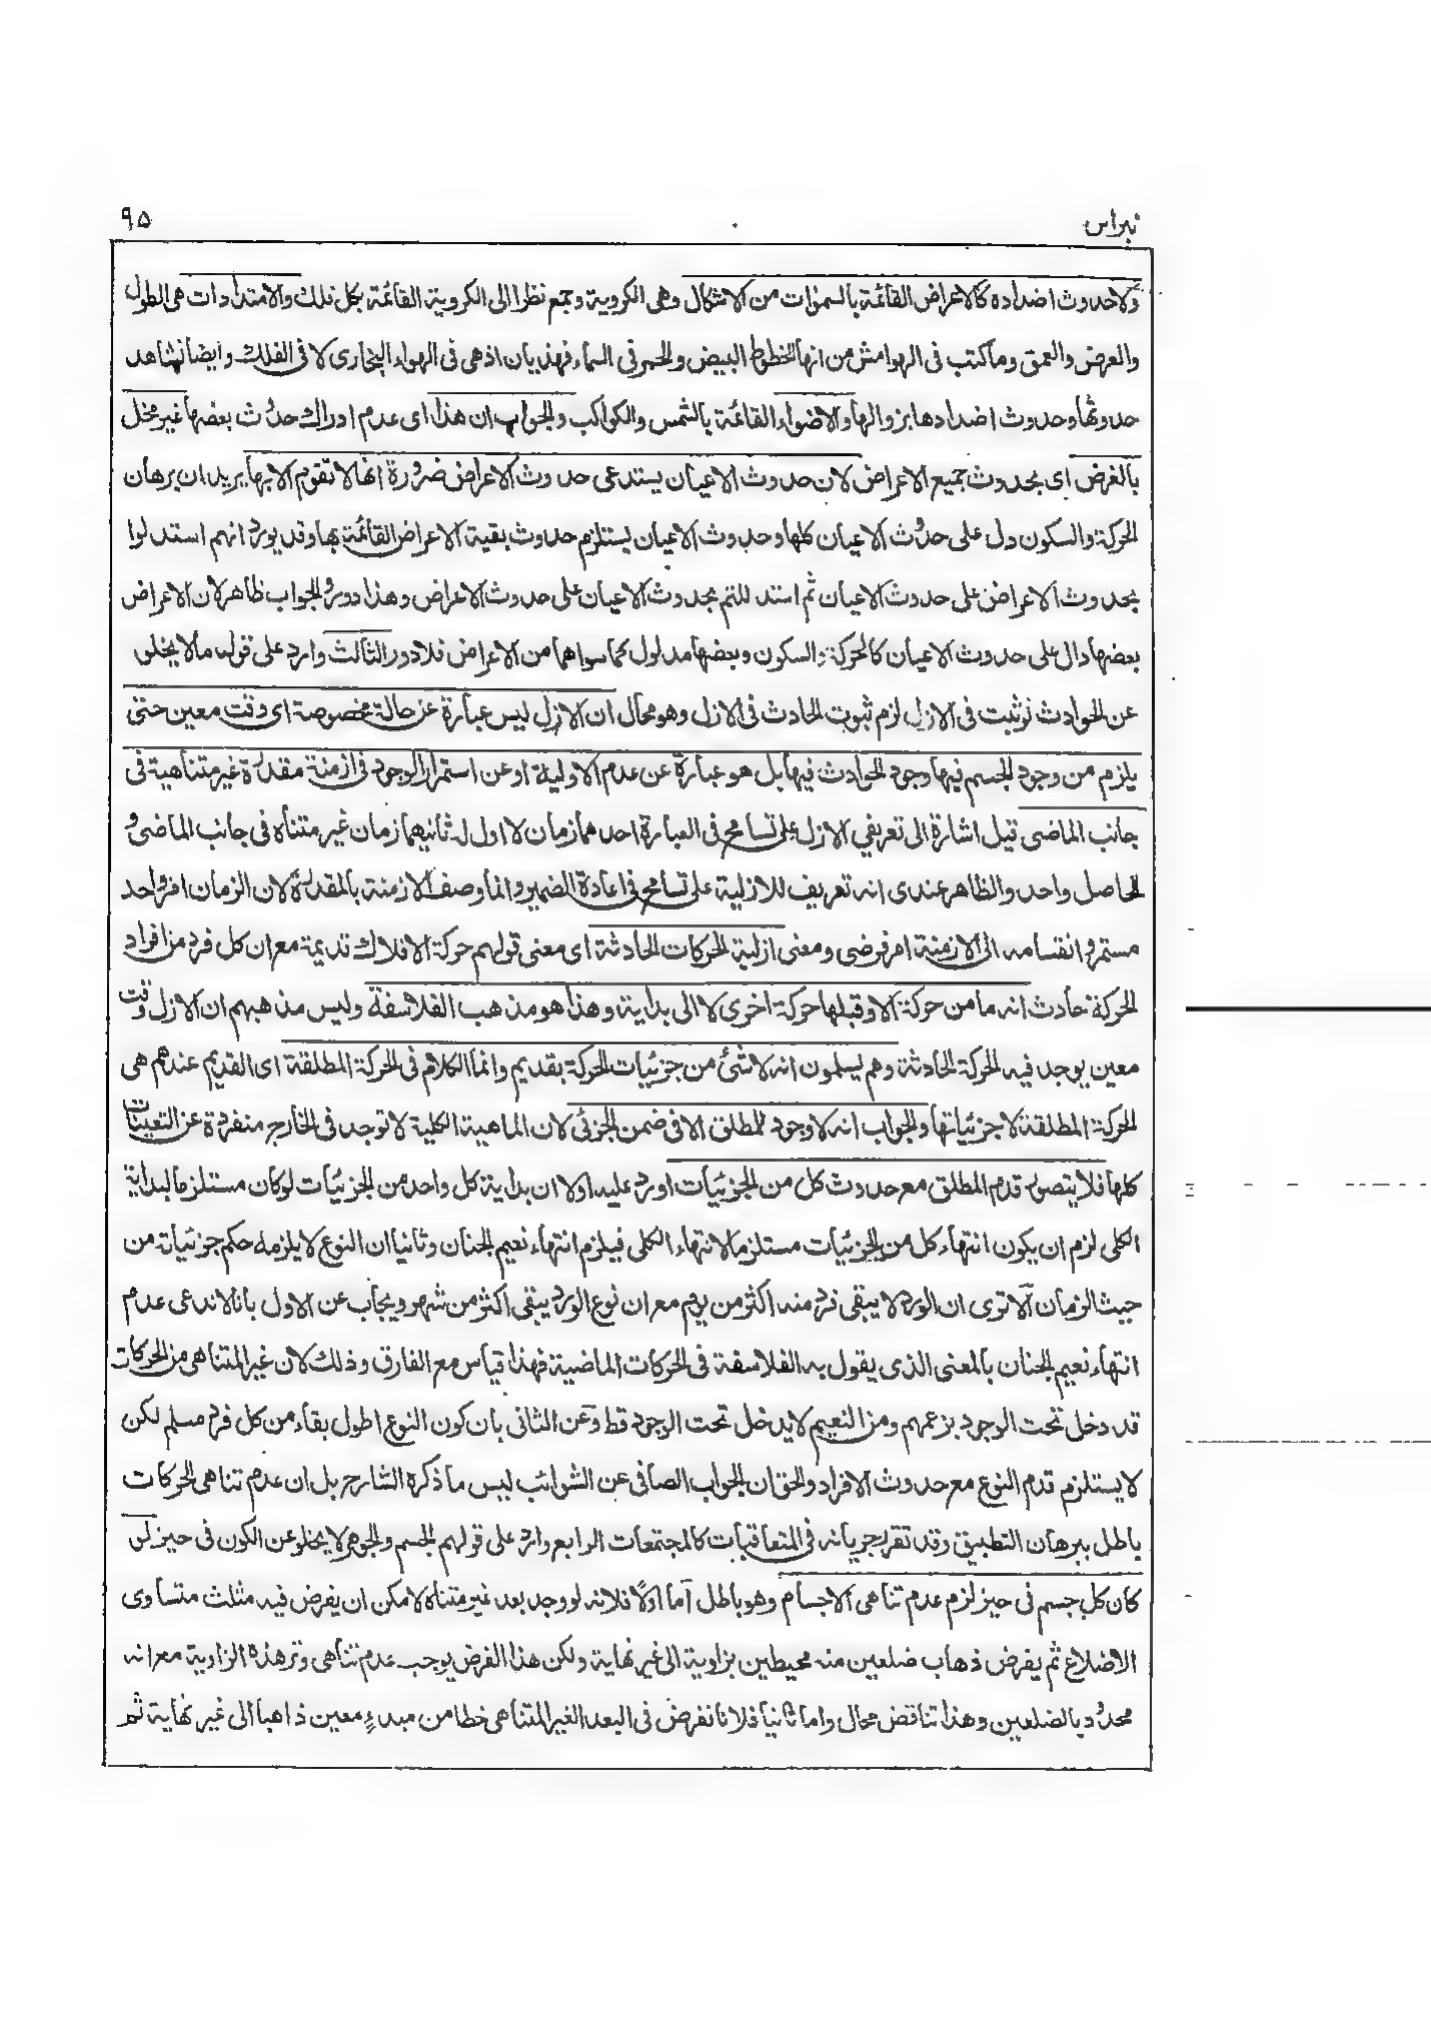 نبراس ٩٥
ولا حدوث اضداده كالاعراض القائمة بالسموات من الاشكال وهى الكروية وجمع نظرا الى الكروية القائمة بكل فلك والامتدادات هى الطول
والعرض والعمق وما كتب فى الهوامش من انها الخطوط البيض والحمر فى السماء فهذيان اذ هى فى الهواء البخارى لا فى الفلك وايضا نشاهد
حدوثها وحدوث اضدادها بزوالها والاضواء القائمة بالشمس والكواكب والجواب ان هذا اى عدم ادراك حدوث بعضها غير مخل
بالغرض اى بحدوث جميع الاعراض لان حدوث الاعيان يستدعى حدوث الاعراض ضرورة انها لا تقوم الا بها يريد ان برهان
الحركة والسكون دل على حدوث الاعيان كلها وحدوث الاعيان يستلزم حدوث بقية الاعراض القائمة بها وقد يورد انهم استدلوا
بحدوث الاعراض على حدوث الاعيان ثم استدللتم بحدوث الاعيان على حدوث الاعراض وهذا دور والجواب ظاهر لان الاعراض
بعضها دال على حدوث الاعيان كالحركة والسكون وبعضها مدلول كما سواهما من الاعراض فلا دور الثالث وارد على قوله ما لا يخلو
عن الحوادث لو ثبت فى الازل لزم ثبوت الحادث فى الازل وهو محال ان الازل ليس عبارة عن حالة مخصوصة اى وقت معين حتى
يلزم من وجود الجسم فيها وجود الحوادث فيها بل هو عبارة عن عدم الاولية او عن استمرار الوجود فى ازمنة مقدرة غير متناهية فى
جانب الماضى قيل اشارة الى تعريفي الازل على تسامح فى العبارة احدهما زمان لا اول له ثانيهما زمان غير متناه فى جانب الماضى و
الحاصل واحد والظاهر عندى انه تعريف للازلية على تسامح فى اعادة الضمير وانما وصف الازمنة بالمقدرة لان الزمان امر واحد
مستمر وانقسامه الى الازمنة امر فرضى ومعنى ازلية الحركات الحادثة اى معنى قولهم حركة الافلاك قديمة مع ان كل فرد من افراد
الحركة حادث انه ما من حركة الا وقبلها حركة اخرى لا الى بداية وهذا هو مذهب الفلاسفة وليس مذهبهم ان الازل وقت
معين يوجد فيه الحركة الحادثة وهم يسلمون انه لا شئ من جزئيات الحركة بقديم وانما الكلام فى الحركة المطلقة اى القديم عندهم هى
الحركة المطلقة لا جزئياتها والجواب انه لا وجود للمطلق الا فى ضمن الجزئى لان الماهية الكلية لا توجد فى الخارج منفردة عن التعينات
كلها فلا يتصور قدم المطلق مع حدوث كل من الجزئيات اورد عليه اولا ان بداية كل واحد من الجزئيات لو كان مستلزما لبداية
الكلى لزم ان يكون انتهاء كل من الجزئيات مستلزما لانتهاء الكلى فيلزم انتهاء نعيم الجنان وثانيا ان النوع لا يلزمه حكم جزئياته من
حيث الزمان الا ترى ان الورد لا يبقى فرد منه اكثر من يوم مع ان نوع الورد يبقى اكثر من شهر ويجاب عن الاول بانا لا ندعى عدم
انتهاء نعيم الجنان بالمعنى الذى يقول به الفلاسفة فى الحركات الماضية فهذا قياس مع الفارق وذلك لان غير المتناهى من الحركات
قد دخل تحت الوجود بزعمهم ومن النعيم لا يدخل تحت الوجود قط وعن الثانى بان كون النوع اطول بقاء من كل فرد مسلم لكن
لا يستلزم قدم النوع مع حدوث الافراد والحق ان الجواب الصافى عن الشوائب ليس ما ذكره الشارح بل ان عدم تناهى الحركات
باطل ببرهان التطبيق وقد تقرر جريانه فى المتعاقبات كالمجتمعات الرابع وارد على قولهم الجسم والجوهر لا يخلو عن الكون فى حيز لو
كان كل جسم فى حيز لزم عدم تناهى الاجسام وهو باطل اما اولا فلانه لو وجد بعد غير متناه لامكن ان يفرض فيه مثلث متساوى
الاضلاع ثم يفرض ذهاب ضلعين منه محيطين بزاوية الى غير نهاية ولكن هذا الفرض يوجب عدم تناهى وتر هذه الزاوية مع انه
محدود بالضلعين وهذا تناقض محال واما ثانيا فلانا نفرض فى البعد الغير المتناهى خطا من مبدء معين ذاهبا الى غير نهاية ثم